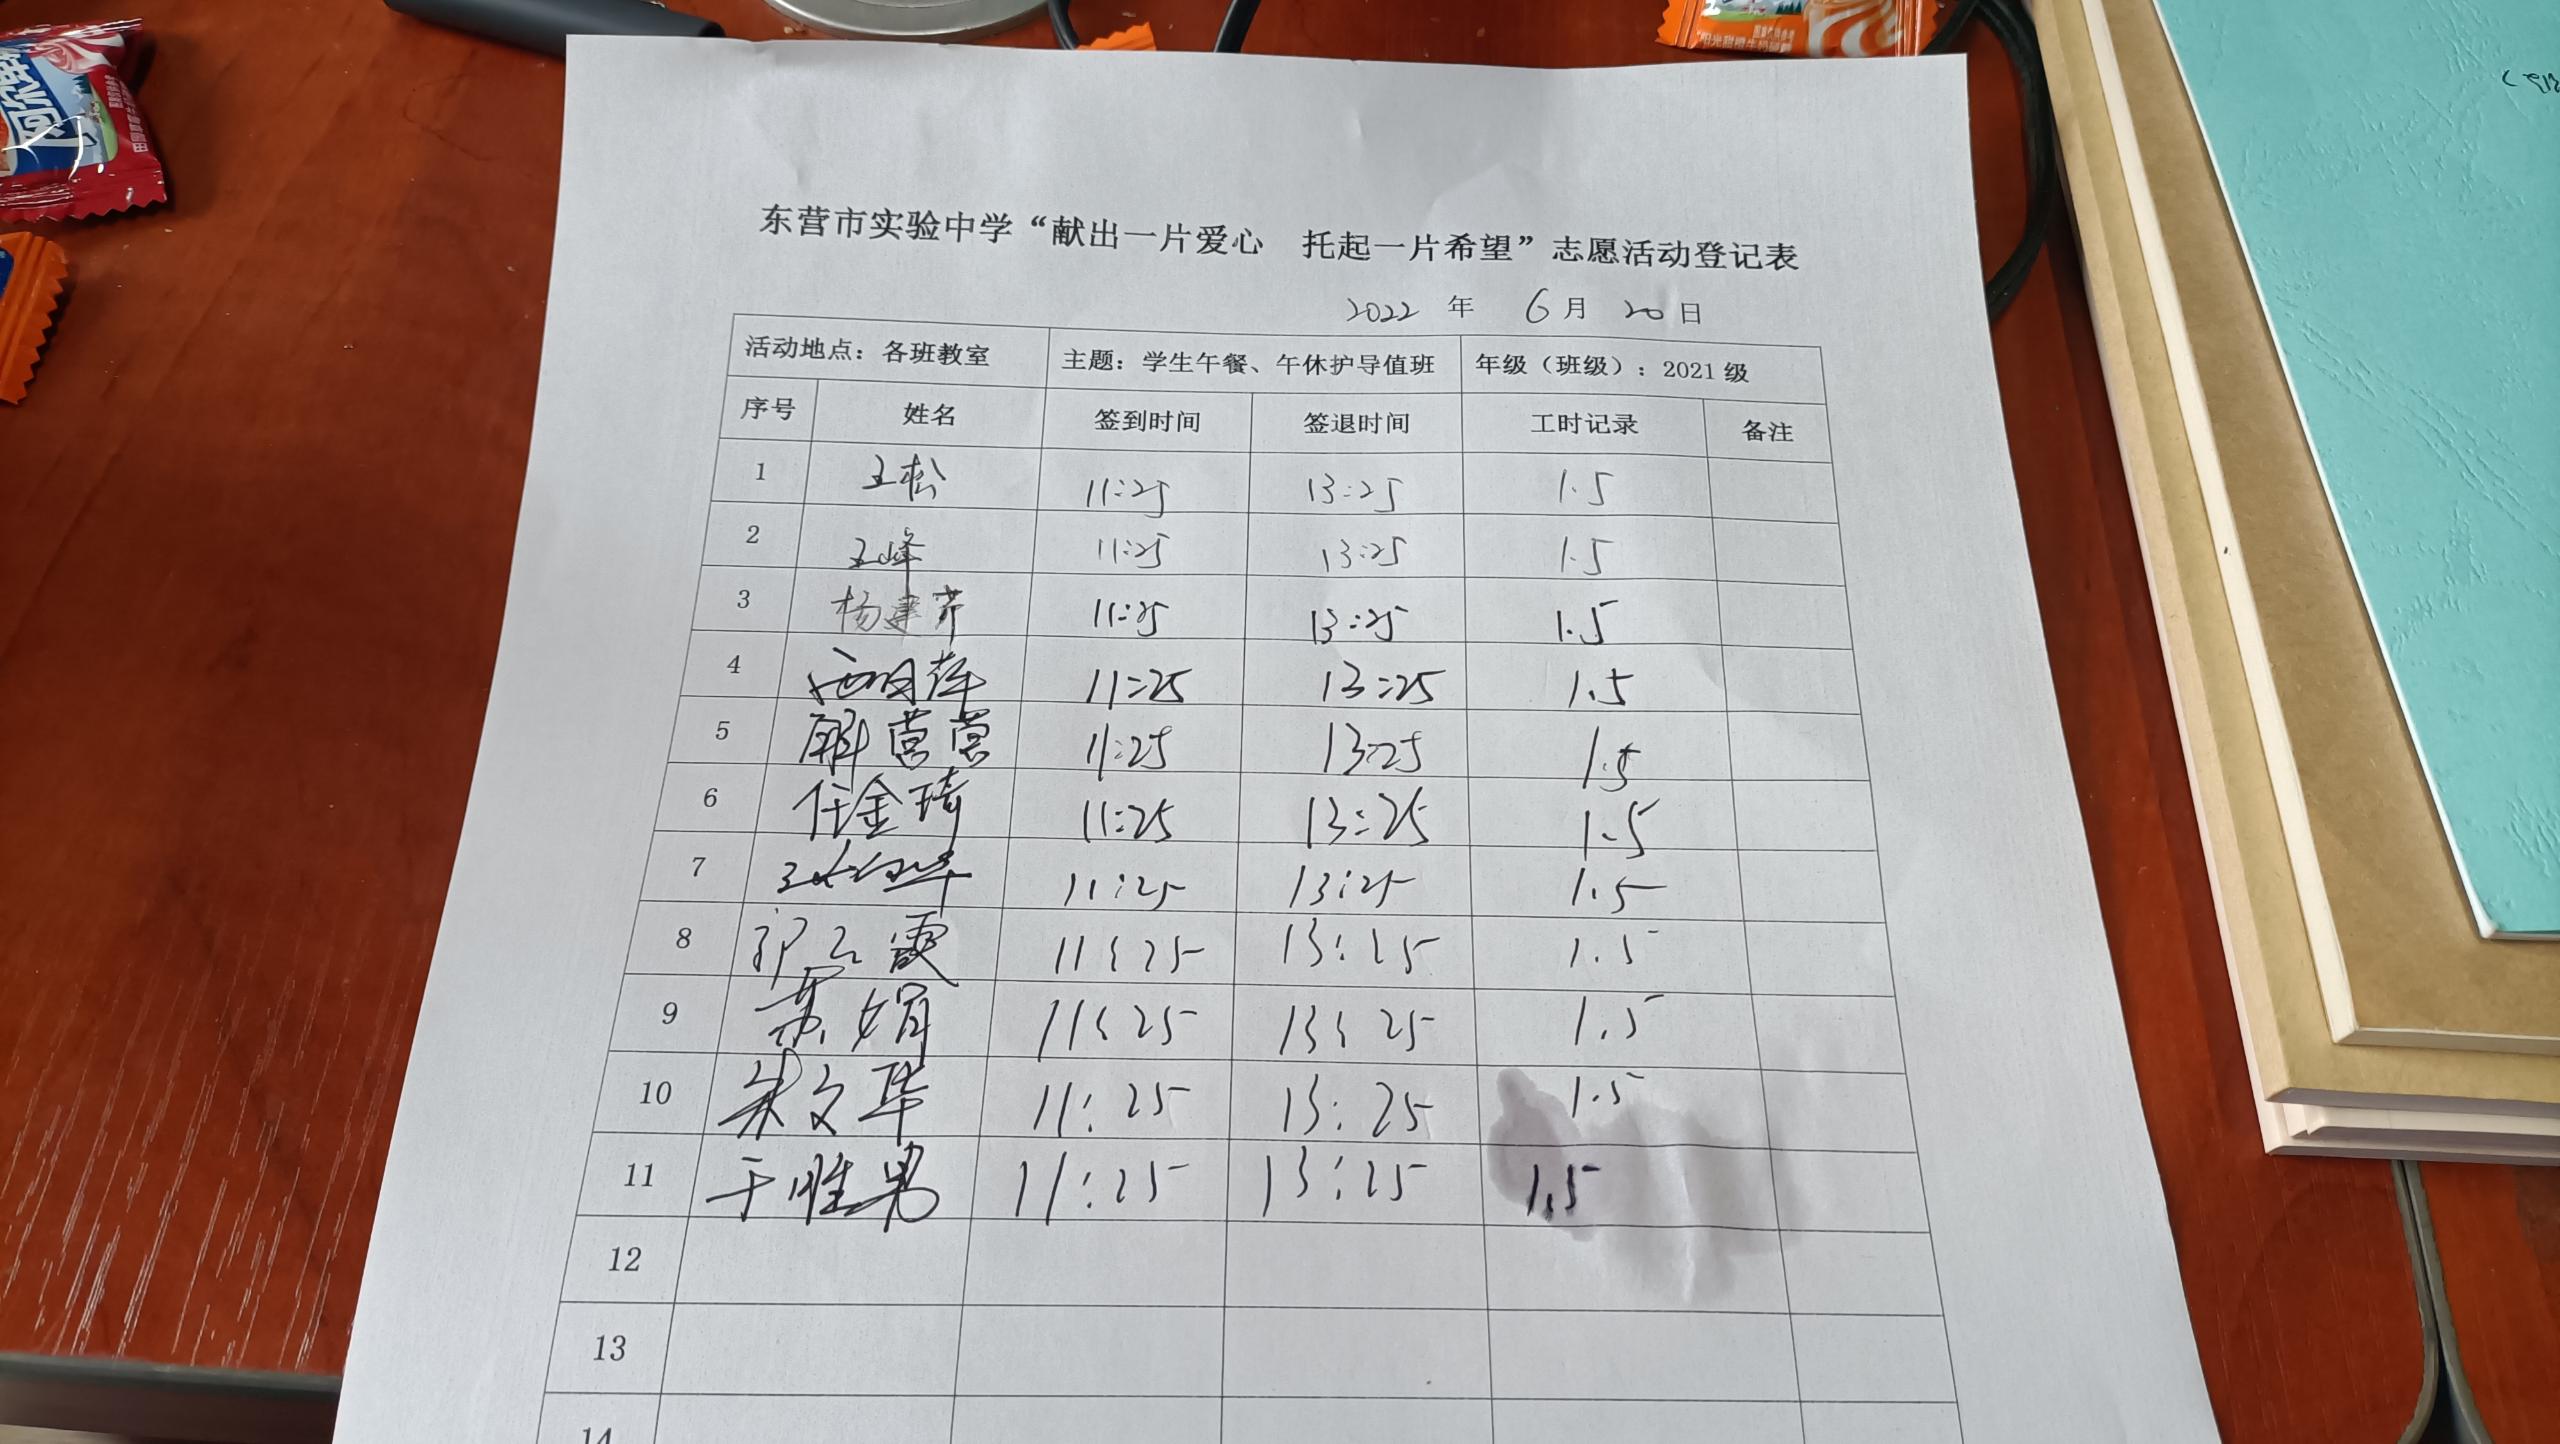 阿尔卑斯
东营市实验中学“献出一片爱心 托起一片希望”志愿活动登记表
2022 年 6 月 20 日
活动地点：各班教室 主题：学生午餐、午休护导值班 年级（班级）：2021 级
序号 姓名 签到时间 签退时间 工时记录 备注
1 王松 11:25 13:25 1.5
2 王峰 11:25 13:25 1.5
3 杨建芹 11:25 13:25 1.5
4 11:25 13:25 1.5
5 解营营 11:25 13:25 1.5
6 任金琦 11:25 13:25 1.5
7 11:25 13:25 1.5
8 11:25 13:25 1.5
9 苏娟 11:25 13:25 1.5
10 朱文华 11:25 13:25 1.5
11 于胜男 11:25 13:25 1.5
12
13
14